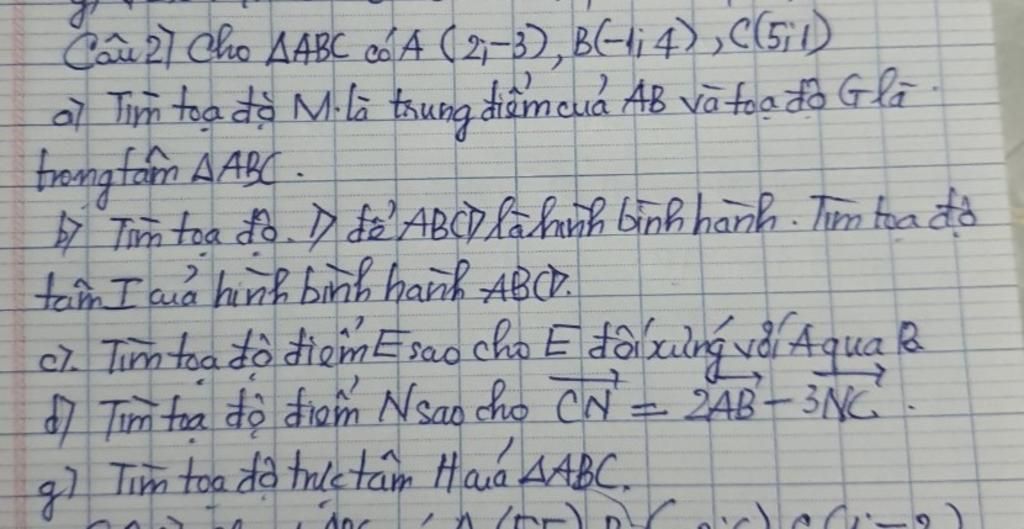 Câu 2) Cho ΔABC có A (2;-3), B(-1; 4), C(5;1)
a) Tìm toạ độ M là trung điểm của AB và toạ độ G là
trọng tâm ΔABC.
b) Tìm toạ độ D để ABCD là hình bình hành. Tìm toạ độ
tâm I của hình bình hành ABCD.
c) Tìm toạ độ điểm E sao cho E đối xứng với A qua B
d) Tìm toạ độ điểm N sao cho CN = 2AB - 3NC.
g) Tìm toạ độ trực tâm H của ΔABC.